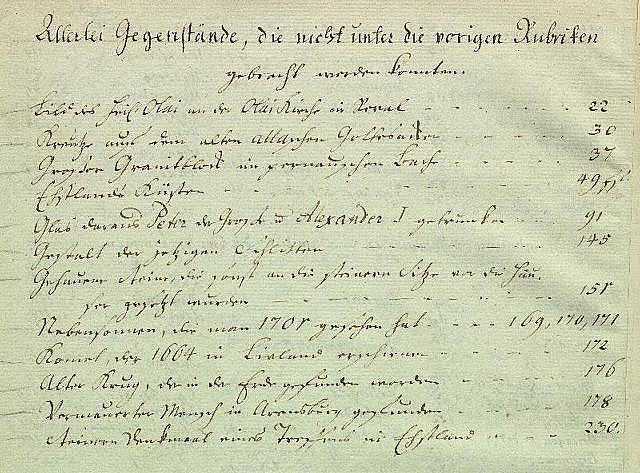 Allerlei Gegenstände, die nicht unter die vorigen Rubriken
gebracht werden konnten.
Bild des Heil. Olai an der Olai Kirche in Reval - - - 22
Kreutze aus dem alten - - - 30
Großer Granitblock im pernauschen Bache - - - 37
Ehstlands Küsten - - - 49
Glas daraus Peter der Große u Alexander I getrunken - - 91
Gestalt der jetzigen Schlitten - - - 145
Gehauene Steine, die sonst an die steinern Sitze vor die Häu-
ser gesetzt wurden - - - 151
Nebensonnen, die man 1701 gesehen hat - - - 169, 170, 171
Komet, der 1664 in Livland erschienen - - - 172
Alter Krug, der in der Erde gefunden worden - - - 176
Vermauerter Mensch in Arensburg gefunden - - - 178
Steinern Denkmaal eines Treffens in Ehstland - - - 230.